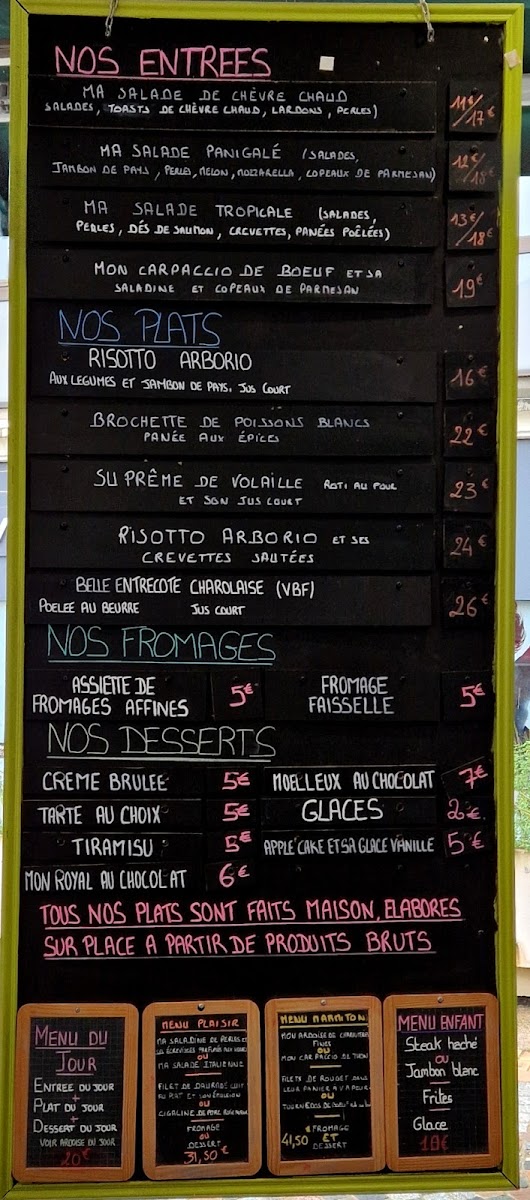 NOS ENTREES
MA SALADE DE CHÈVRE CHAUD 11€/17€
SALADES, TOASTS DE CHÈVRE CHAUD, LARDONS, PERLES)
MA SALADE PANIGALÉ (SALADES, 12€/18€
JAMBON DE PAYS, PERLES, MELON, MOZZARELLA, COPEAUX DE PARMESAN)
MA SALADE TROPICALE (SALADES, 13€/18€
PERLES, DÉS DE SAUMON, CREVETTES, PANÉES POÊLÉES)
MON CARPACCIO DE BOEUF ET SA 19€
SALADINE ET COPEAUX DE PARMESAN
NOS PLATS
RISOTTO ARBORIO
AUX LEGUMES ET JAMBON DE PAYS. JUS COURT 16€
BROCHETTE DE POISSONS BLANCS 22€
PANÉE AUX ÉPICES
SUPRÊME DE VOLAILLE ROTI AU FOUR 23€
ET SON JUS COURT
RISOTTO ARBORIO ET SES 24€
CREVETTES SAUTÉES
BELLE ENTRECOTE CHAROLAISE (VBF) 26€
POELEE AU BEURRE JUS COURT
NOS FROMAGES
ASSIETTE DE
FROMAGES AFFINES 5€
FROMAGE
FAISSELLE 5€
NOS DESSERTS
CREME BRULEE 5€ MOELLEUX AU CHOCOLAT 7€
TARTE AU CHOIX 5€ GLACES 2€
TIRAMISU 5€ APPLE CAKE ET SA GLACE VANILLE 5€
MON ROYAL AU CHOCOLAT 6€
TOUS NOS PLATS SONT FAITS MAISON, ELABORES
SUR PLACE A PARTIR DE PRODUITS BRUTS
MENU DU
JOUR
ENTREE DU JOUR
+
PLAT DU JOUR
+
DESSERT DU JOUR
VOIR ARDOISE DU JOUR
20€
MENU PLAISIR
MA SALADINE DE PERLES ET
OU
MA SALADE ITALIENNE
FILET DE DAURADE CUIT
AU PLAT ET SON ÉMULSION
OU
FROMAGE
OU
DESSERT
31,50€
MENU MARMITON
MON ARDOISE DE CHARCUTERIE
FINES
OU
MON CARPACCIO DE THON
FILETS DE ROUGET DANS
LEUR PANIER A VAPEUR
OU
FROMAGE
41,50 ET
DESSERT
MENU ENFANT
Steak haché
ou
Jambon blanc
Frites
Glace
10€